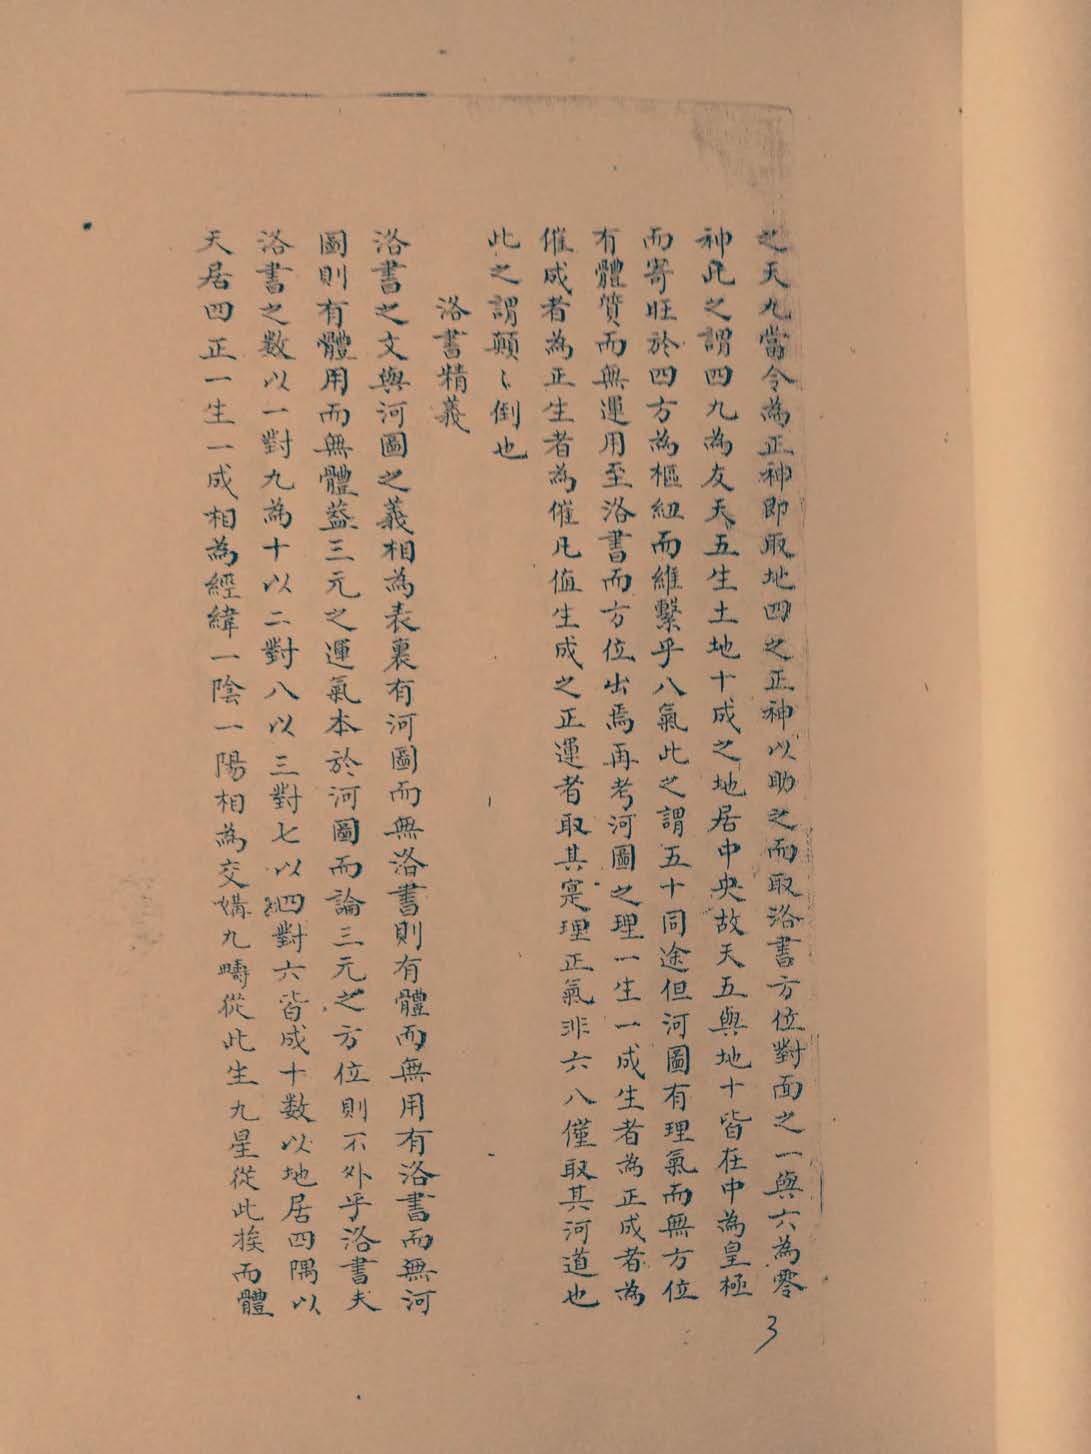 之天九當令為正神即取地四之正神以助之而取洛書方位對面之一與六為零
神此之謂四九為友天五生土地十成之地居中央故天五與地十皆在中為皇極
而寄旺於四方為樞紐而維繫乎八氣此之謂五十同途但河圖有理氣而無方位
有體質而無運用至洛書而方位出焉再考河圖之理一生一成生者為正成者為
催成者為正生者為催凡值生成之正運者取其寔理正氣非六八僅取其河道也
此之謂顛〻倒也
洛書精義
洛書之文與河圖之義相為表裏有河圖而無洛書則有體而無用有洛書而無河
圖則有體用而無體蓋三元之運氣本於河圖而論三元之方位則不外乎洛書夫
洛書之数以一對九為十以二對八以三對七以四對六皆成十数以地居四隅以
天居四正一生一成相為經緯一陰一陽相為交媾九疇從此生九星從此挨而體
3